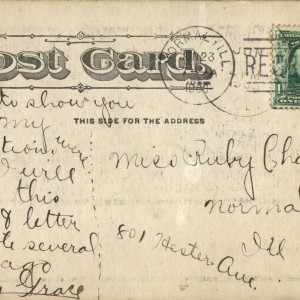 Post Card.
THIS SIDE FOR THE ADDRESS
NORMAL, ILL.
23
REC
to show you
my
I will
this
letter
several
ago
Grace
Miss Ruby Cha
Norma
Ill
801 Hester Ave.